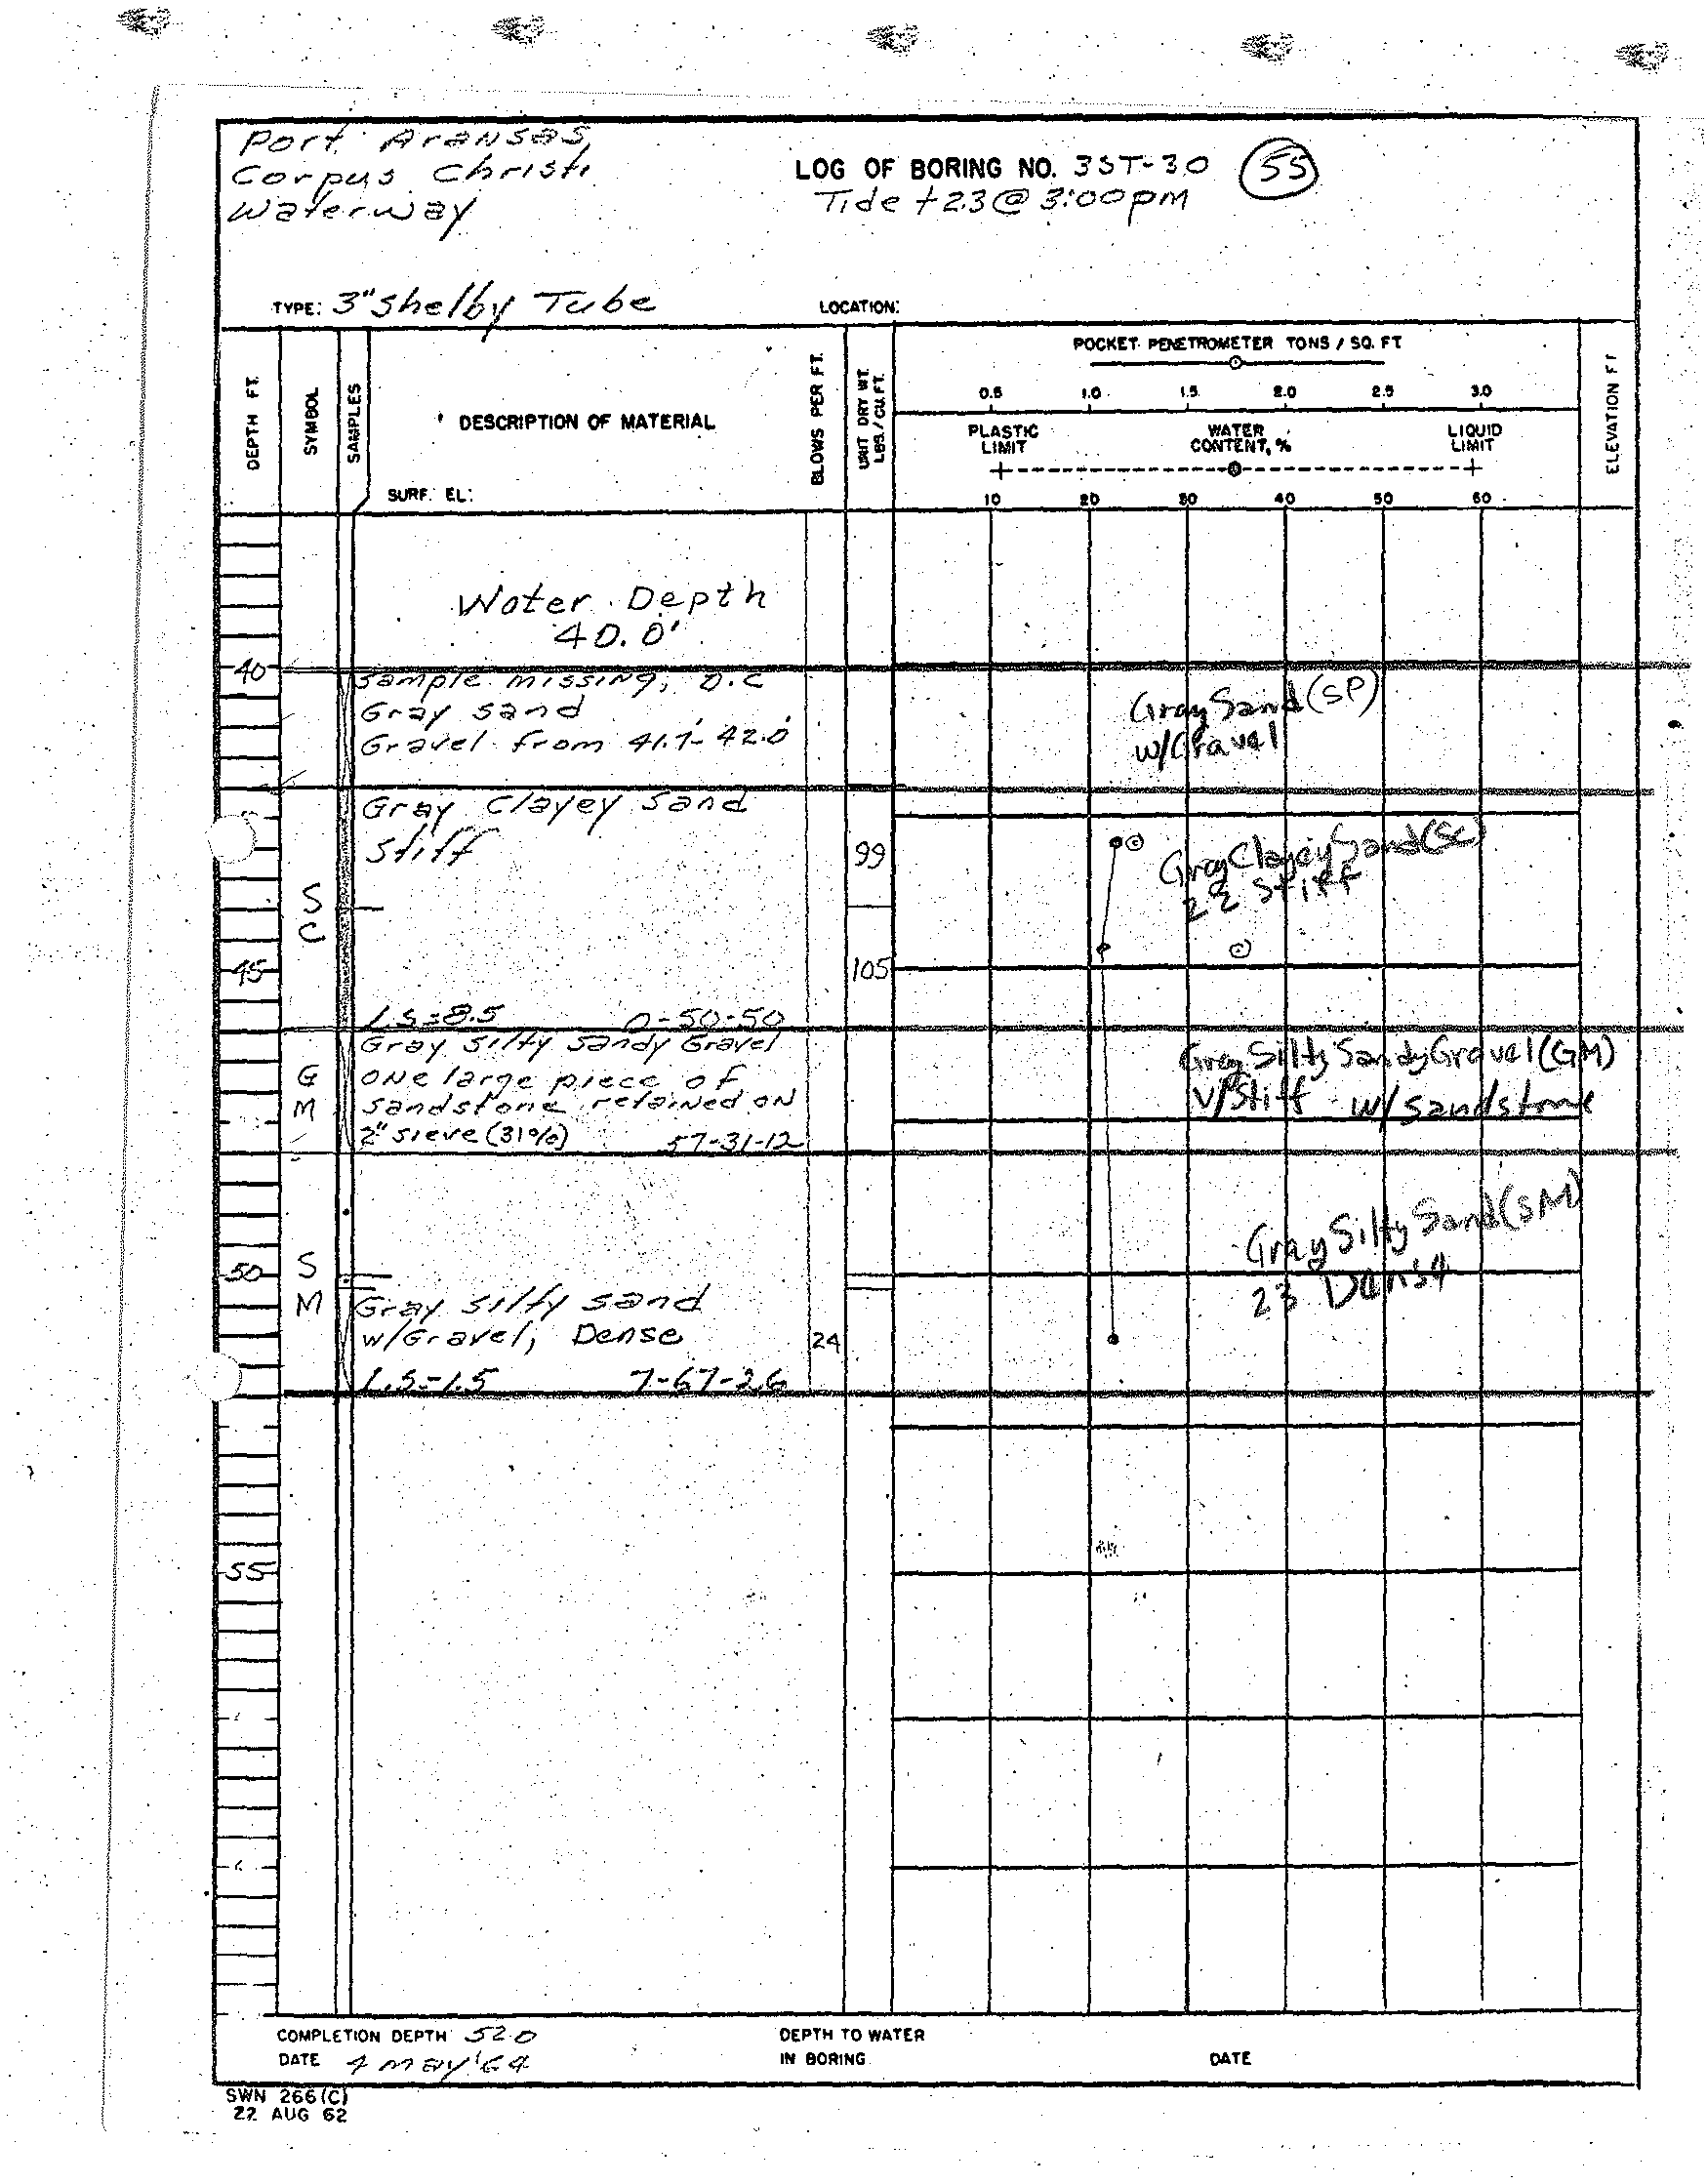 Port Aransas,
Corpus Christi
Waterway
LOG OF BORING NO. 3ST-30 55
Tide +2.3 @ 3:00pm
TYPE: 3" Shelby Tube
LOCATION:
DEPTH FT.
SYMBOL
SAMPLES
DESCRIPTION OF MATERIAL
SURF. EL:
BLOWS PER FT.
UNIT DRY WT.
LBS./CU.FT.
POCKET PENETROMETER TONS / SQ. FT
0.5 1.0 1.5 2.0 2.5 3.0
PLASTIC
LIMIT
WATER
CONTENT, %
LIQUID
LIMIT
10 20 30 40 50 60
ELEVATION FT
Water Depth
40.0'
40
Sample missing, D.C
Gray sand
Gravel from 41.7'-42.0'
Gray Sand (SP)
w/Gravel
Gray Clayey Sand
Stiff
99
Gray Clayey Sand (SC)
22 Stiff
S
C
45
105
L.S=8.5 0-50-50
Gray Silty Sandy Gravel
One large piece of
sandstone retained on
2" sieve (31%) 57-31-12
G
M
Gray Silty Sandy Gravel (GM)
V/Stiff w/sandstone
50
S
M
Gray Silty Sand
w/Gravel, Dense
24
L.S.=1.5 7-67-26
Gray Silty Sand (SM)
23 Dense
55
COMPLETION DEPTH 52.0
DATE 4 MAY '64
DEPTH TO WATER
IN BORING
DATE
SWN 266(C)
22 AUG 62